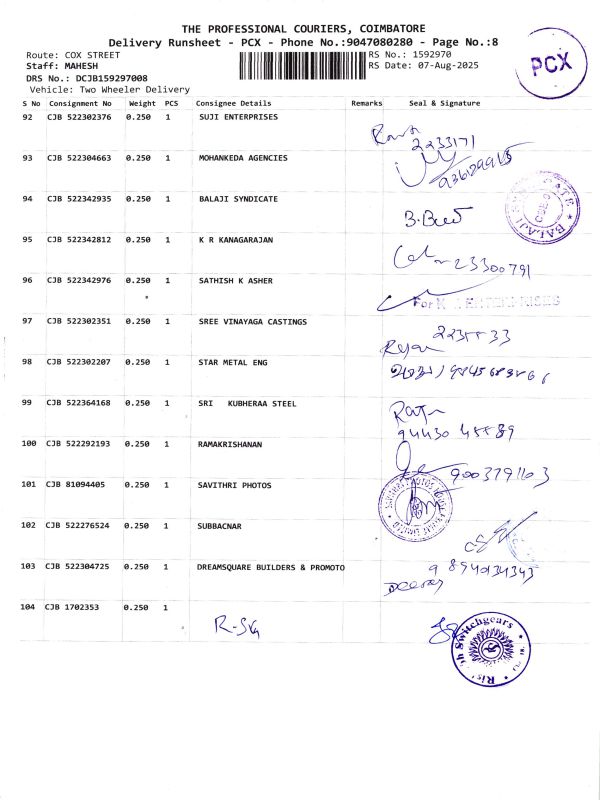 THE PROFESSIONAL COURIERS, COIMBATORE
Delivery Runsheet - PCX - Phone No.:9047080280 - Page No.:8
Route: COX STREET
RS No.: 1592970
Staff: MAHESH
RS Date: 07-Aug-2025
DRS No.: DCJB159297008
Vehicle: Two Wheeler Delivery
PCX
S No Consignment No Weight PCS Consignee Details Remarks Seal & Signature
92 CJB 522302376 0.250 1 SUJI ENTERPRISES
2233171
93 CJB 522304663 0.250 1 MOHANKEDA AGENCIES
94 CJB 522342935 0.250 1 BALAJI SYNDICATE
95 CJB 522342812 0.250 1 K R KANAGARAJAN
23300791
96 CJB 522342976 0.250 1 SATHISH K ASHER
97 CJB 522302351 0.250 1 SREE VINAYAGA CASTINGS
98 CJB 522302207 0.250 1 STAR METAL ENG
99 CJB 522364168 0.250 1 SRI KUBHERAA STEEL
100 CJB 522292193 0.250 1 RAMAKRISHANAN
101 CJB 81094405 0.250 1 SAVITHRI PHOTOS
102 CJB 522276524 0.250 1 SUBBACNAR
103 CJB 522304725 0.250 1 DREAMSQUARE BUILDERS & PROMOTO
8940134343
104 CJB 1702353 0.250 1
Switchgears